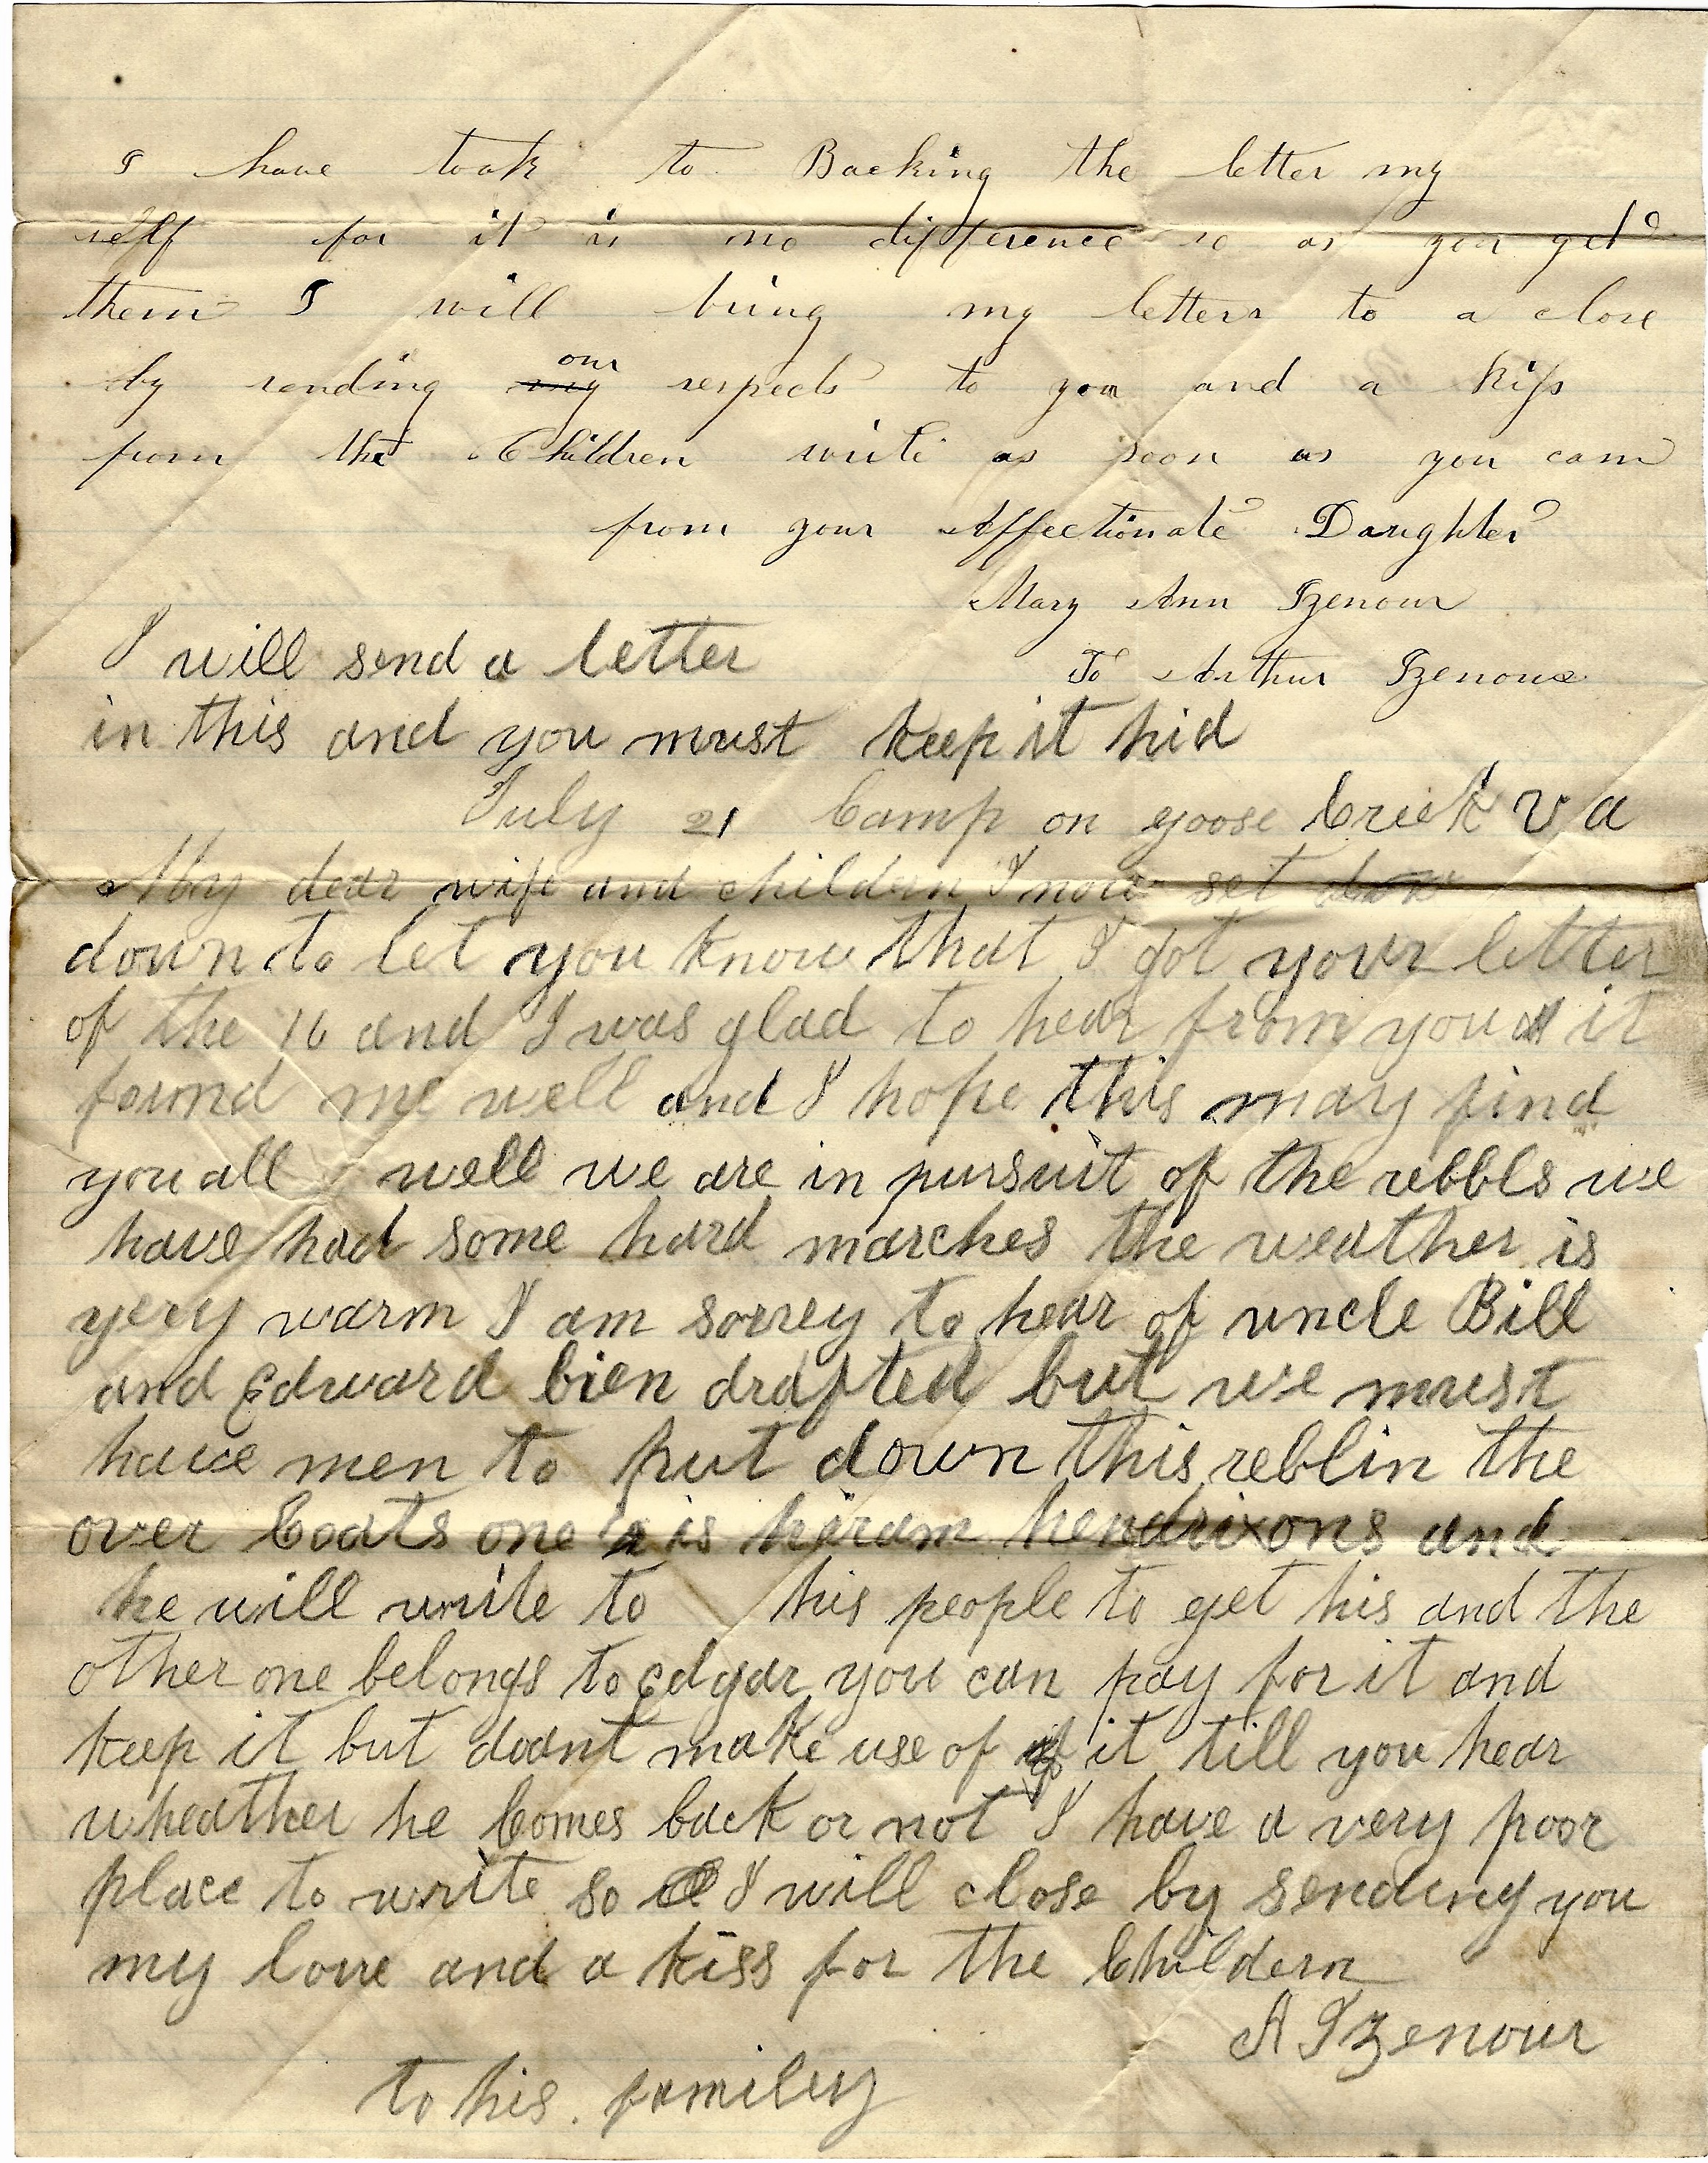 I have took to Backing the letter my
self for it is no difference so as you get
them I will bring my letters to a close
by sending my our respects to you and a kiss
from the Children write as soon as you cam
from your Affectionate Daughter
Mary Ann Izenour
To Arthur Izenour
I will send a letter
in this and you must keep it hid
July 21 Camp on goose Criek va
My dear wife and childern I now set
down to let you know that I got your letter
of the 16 and I was glad to hear from you it
found me well and I hope this may find
you all well we are in pursuit of the rebbls we
have had some hard marches the weather is
very warm I am sorrey to hear of uncle Bill
and Edward bien drafted but we must
have men to put down this reblin the
over Coats one is hiram hendrixons and
he will write to his people to get his and the
other one belongs to Edgar you can pay for it and
keep it but doant make use of it till you hear
wheather he Comes back or not I have a very poor
place to write so I will close by sending you
my love and a kiss for the Childern
A Izenour
to his familey